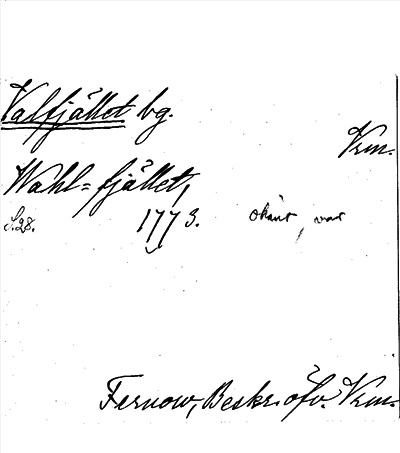 Valfjället bg.
Vrm.
Wahl-fjället,
S.28. 1773. okänt, var
Fernow, Beskr. öfv. Vrm.